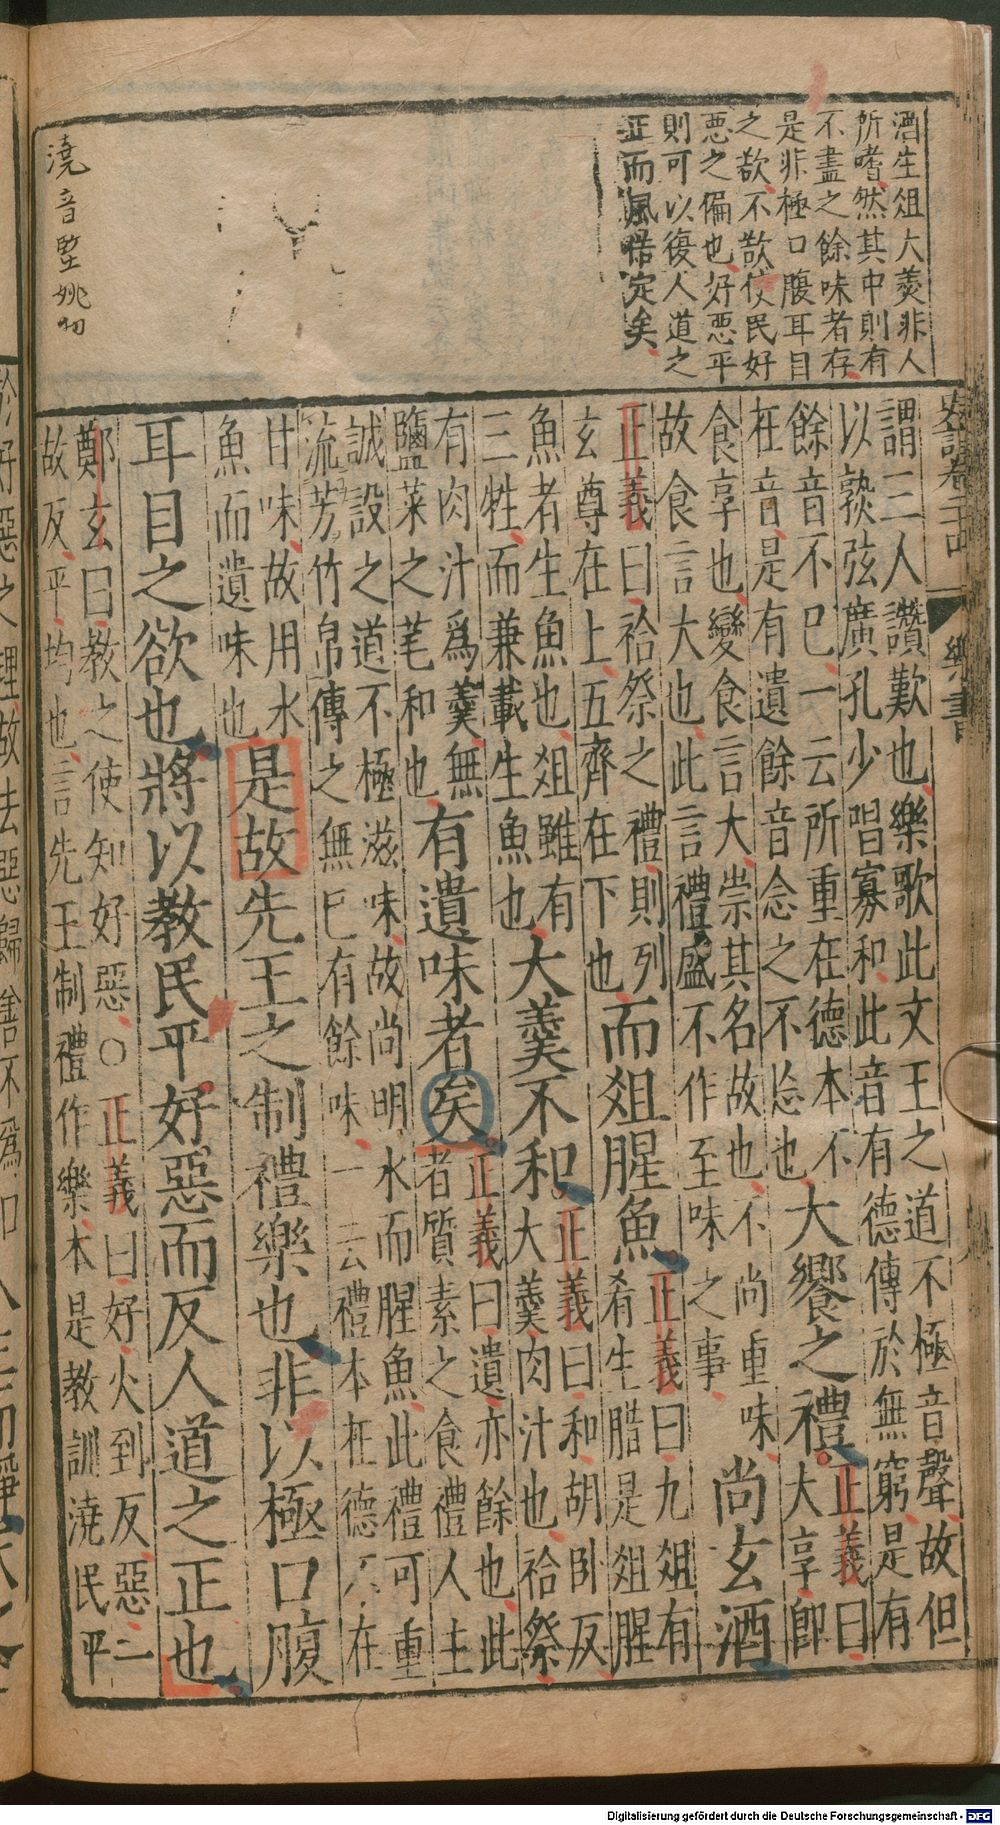 酒生俎大羮非人
所嗜然其中則有
不盡之餘味者存
是非極口腹耳目
之欲不欲使民好
惡之偏也好惡平
則可以復人道之
正而風俗定矣
史記卷二十四 樂書
謂三人讚歎也樂歌此文王之道不極音聲故但
以熟弦廣孔少唱寡和此音有德傳於無窮是有
餘音不巳一云所重在德本不
在音是有遺餘音念之不忘也
大饗之禮
正義曰
大享即
食享也變食言大崇其名故也不尚重味
故食言大也此言禮盛不作至味之事
尚玄酒
正義曰祫祭之禮則列
玄尊在上五齊在下也
而俎腥魚
正義曰九俎有
肴生腊是俎腥
魚者生魚也俎雖有
三牲而兼載生魚也
大羮不和
正義曰和胡卧反
大羮肉汁也祫祭
有肉汁爲羮無
鹽菜之芼和也
有遺味者矣
正義曰遺亦餘也此
者質素之食禮人主
誠設之道不極滋味故尚明水而腥魚此禮可重
流芳竹帛傳之無巳有餘味一云禮本在德不在
甘味故用水
魚而遺味也
是故先王之制禮樂也非以極口腹
耳目之欲也將以教民平好惡而反人道之正也
鄭玄曰教之使知好惡○正義曰好火到反惡一
故反平均也言先王制禮作樂本是教訓澆民平
澆音堅姚切
Digitalisierung gefördert durch die Deutsche Forschungsgemeinschaft - DFG